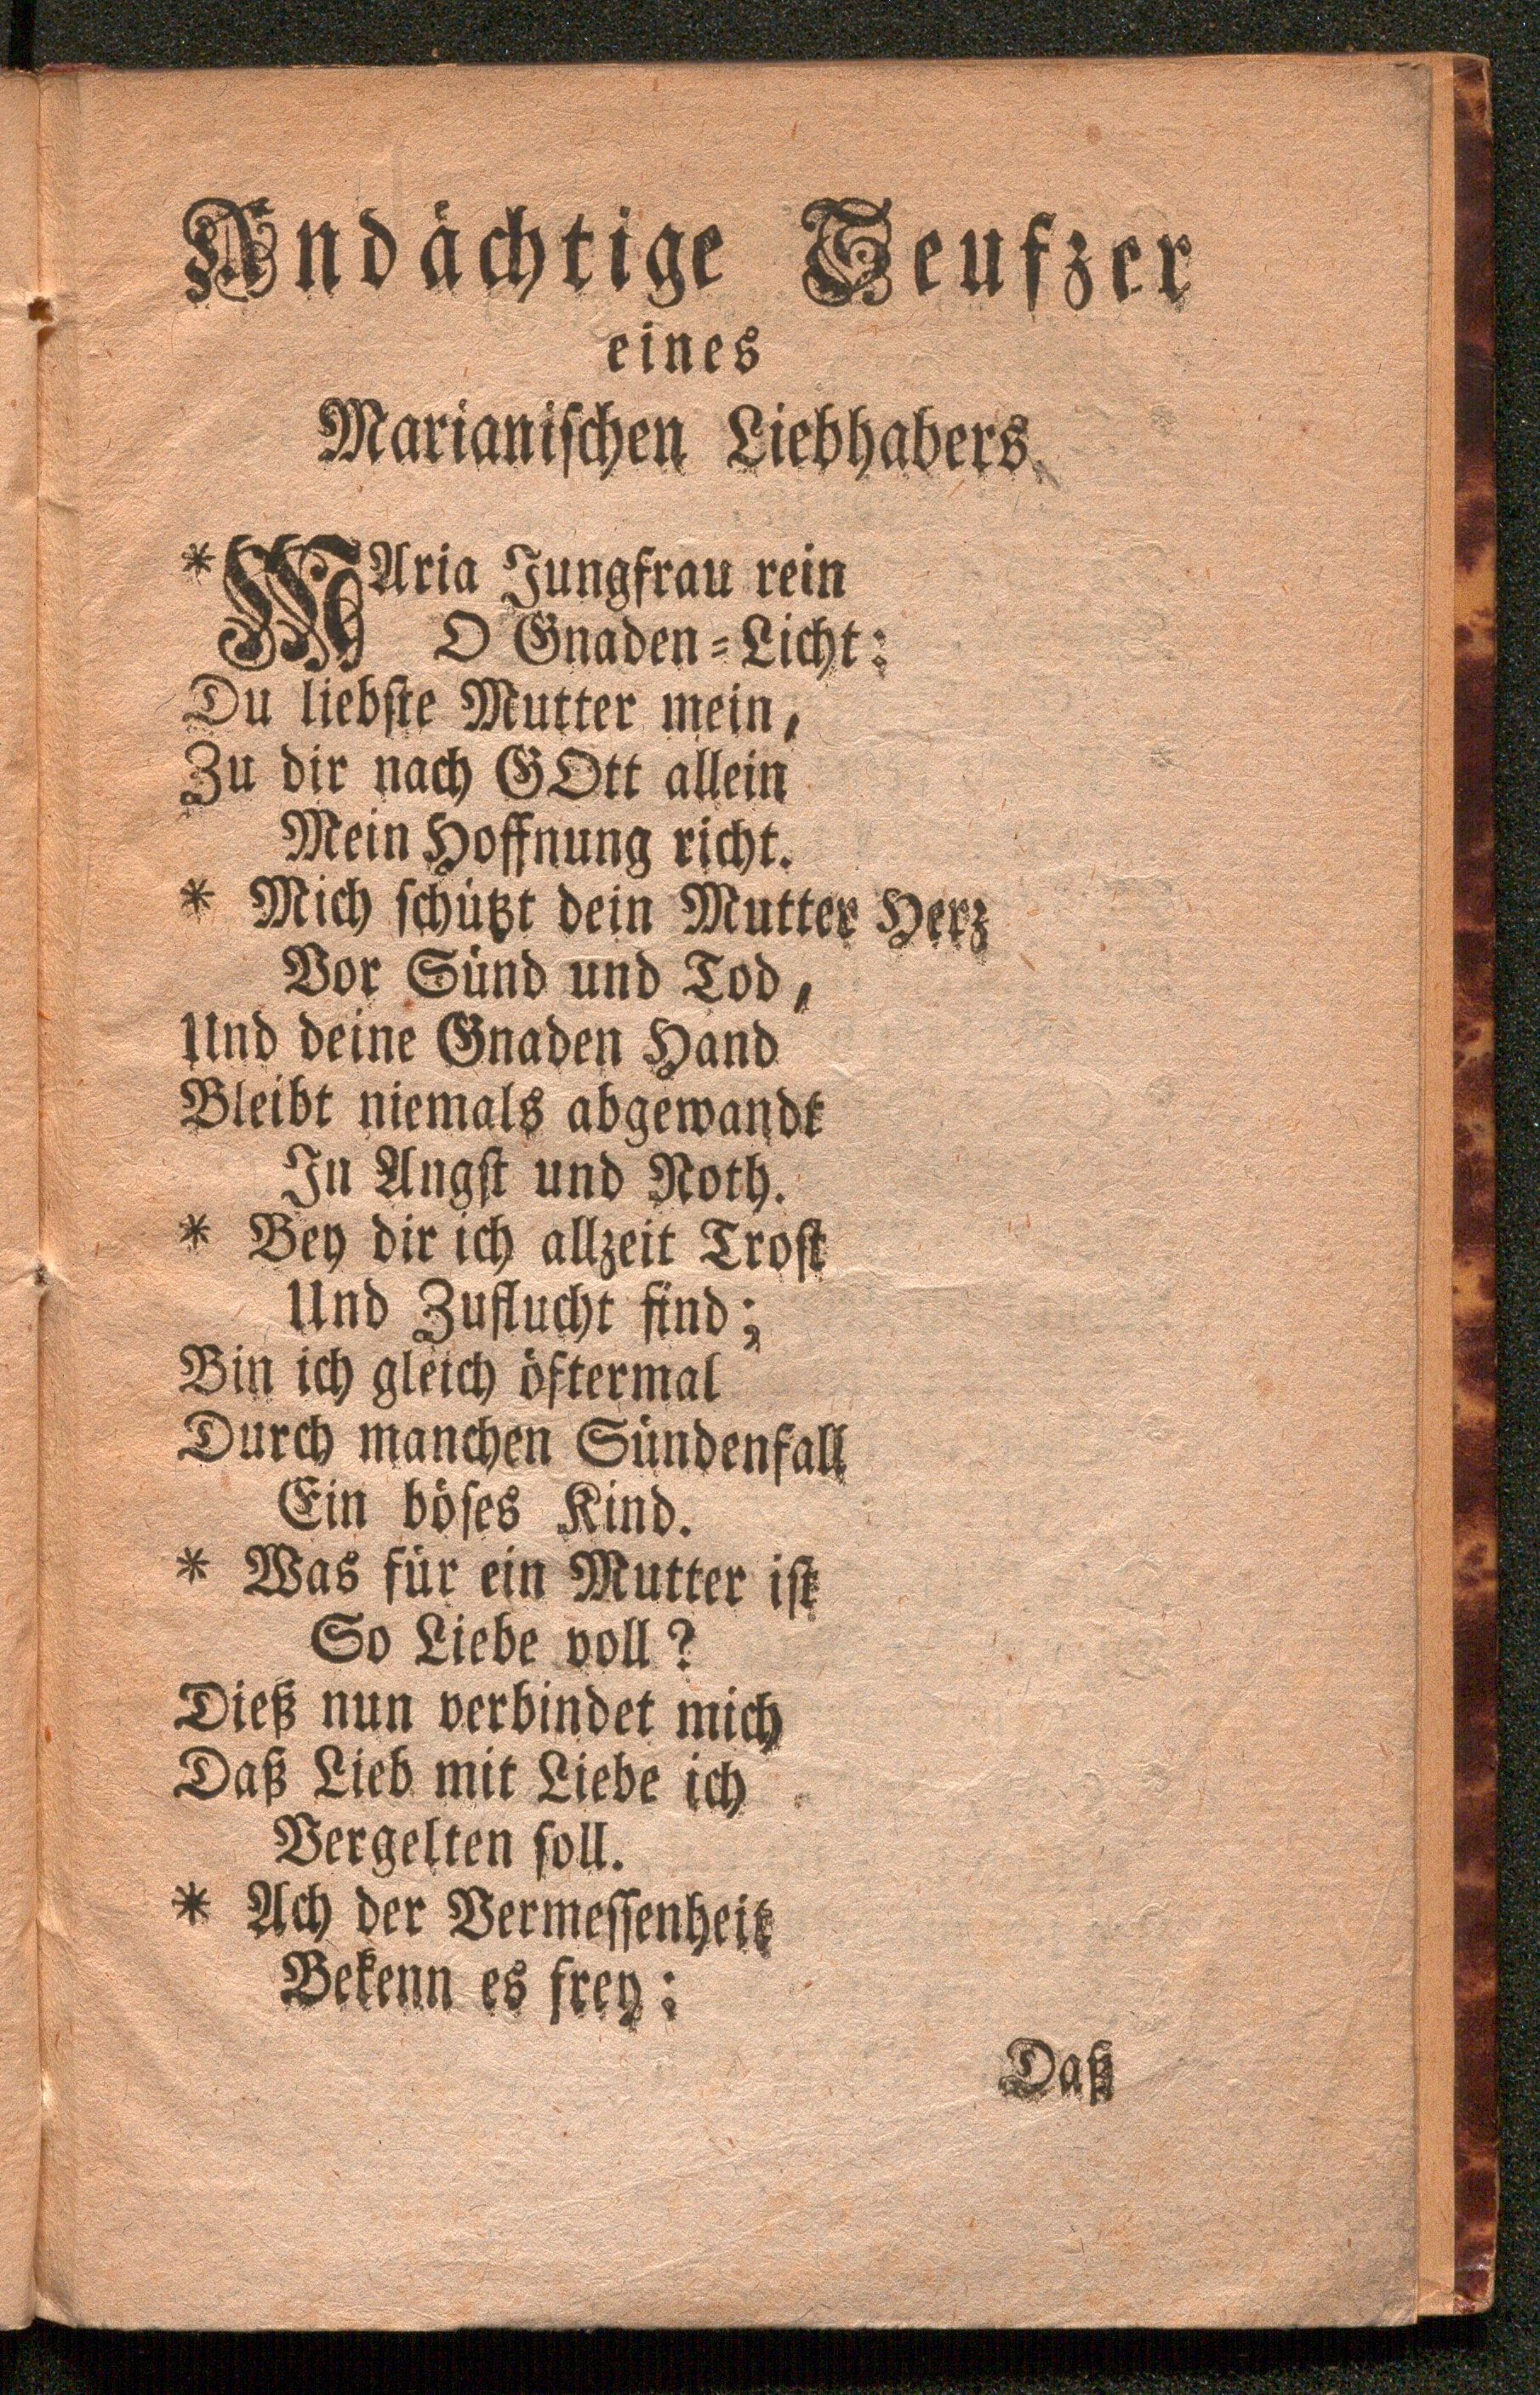 Andächtige Seufzer
eines
Marianiſchen Liebhabers.
* MAria Jungfrau rein
O Gnaden=Licht:
Du liebſte Mutter mein,
Zu dir nach GOtt allein
Mein Hoffnung richt.
* Mich ſchützt dein Mutter Herz
Vor Sünd und Tod,
Und deine Gnaden Hand
Bleibt niemals abgewandt
In Angſt und Noth.
* Bey dir ich allzeit Troſt
Und Zuflucht find;
Bin ich gleich öftermal
Durch manchen Sündenfall
Ein böſes Kind.
* Was für ein Mutter iſt
So Liebe voll?
Dieß nun verbindet mich
Daß Lieb mit Liebe ich
Vergelten ſoll.
* Ach der Vermeſſenheit
Bekenn es frey:
Daß